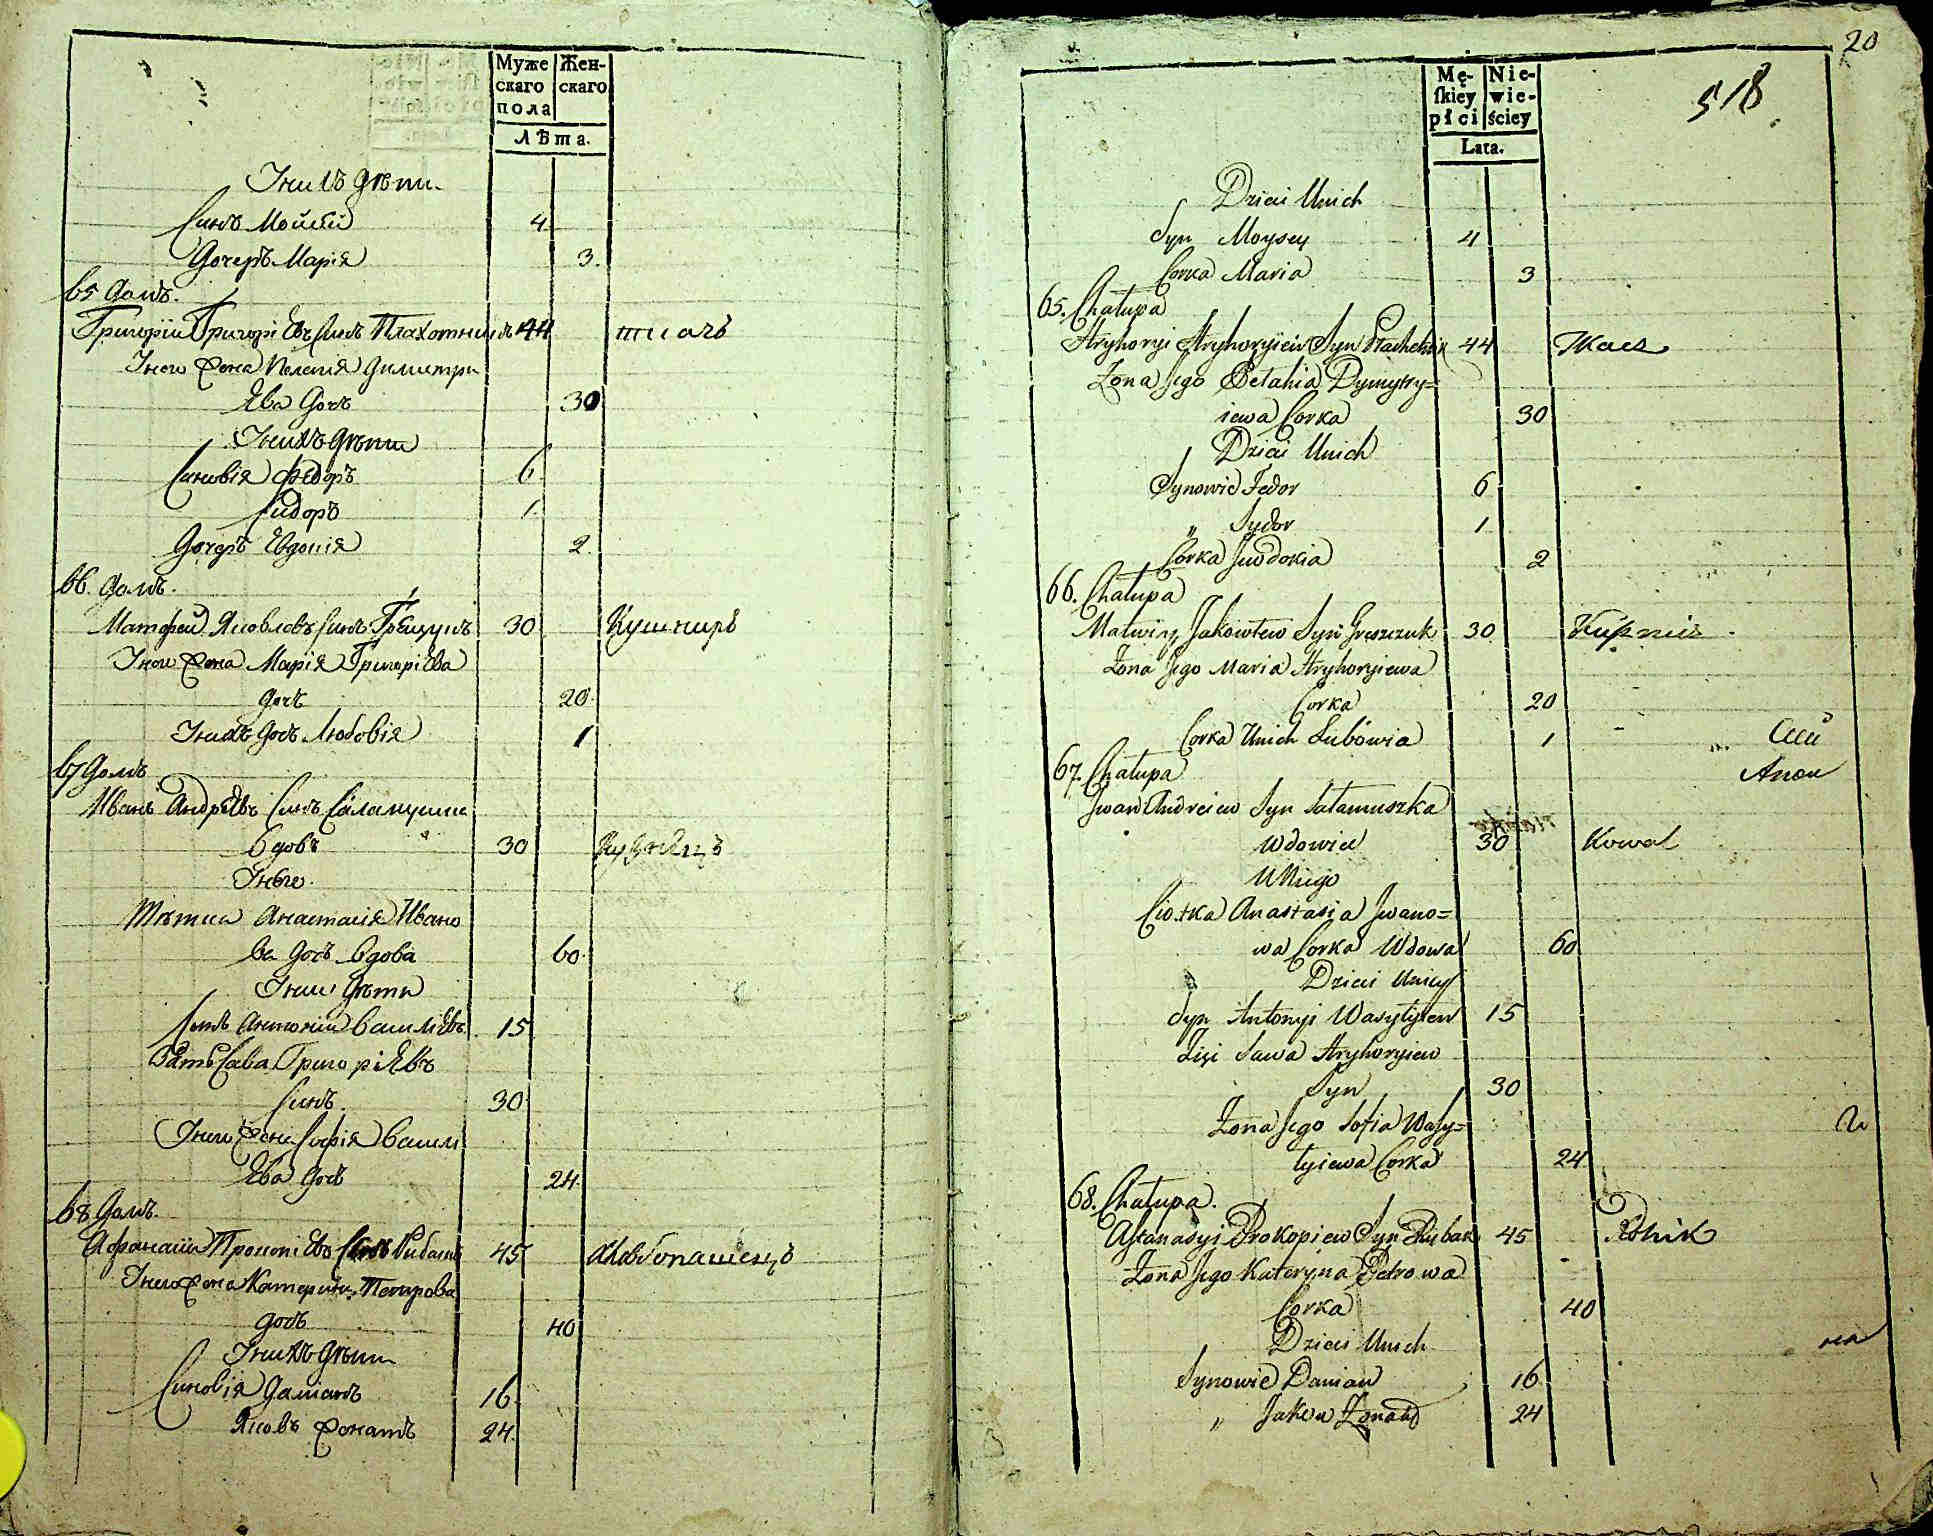 Муже
скаго
пола
Жен-
скаго
Лѣта.
У них дѣти.
Синъ Мойсей 4
Дочеръ Марія 3.
65 Домъ.
Григорій Григоріевъ Синъ Плахотникъ 44 ткачъ
У него жона Пелагія Димитрі
ева дочъ 30
У нихъ дѣти
Синовія Федоръ 6
Сидоръ 1.
Дочеръ Евдокія 2.
66. Домъ.
Матфей Яковлевъ Синъ Грещукъ 30 Кушниръ
У него жона Марія Григоріева
дочъ 20.
У нихъ дочъ Любовія 1
67 Домъ
Иванъ Андреевъ Синъ Саламушка
вдовъ 30 Кузнецъ
У него.
Тіотка Анастасія Ивано
ва дочъ вдова 60.
У ней дѣти
Синъ Антоній Василіевъ. 15
Зять Сава Григоріевъ
Синъ. 30.
У него жона Софія Васил
іева дочъ 24.
68 Домъ.
Афанасій Прокопіевъ Синъ Рибакъ 45 Хлебопашецъ
У него жона Катерина Петрова
дочъ 40
У нихъ дѣти
Синовія Даміанъ 16.
Яковъ жонатъ 24.
20
518
Mę-
ſkiey
płci
Nie-
wie-
ściey
Lata.
Dzieci Unich
Syn Moysey 4
Corka Maria 3
65. Chałupa
Hryhoryi Hryhoryiew Syn Płachotnik 44 Tkacz
Zona Jego Pełahia Dymytry=
iewa Corka 30
Dzieci Unich
Synowie Fedor 6
„ Sydor 1
Corka Juwdokia 2
66. Chałupa
Matwiy Jakowlew Syn Greszczuk 30 Kuśnierz
Zona Jego Maria Hryhoryiewa
Corka 20
Corka Unich Lubowia 1
67. Chałupa
Iwan Andreiew Syn Sałamuszka
Wdowiec 30 Kowal
UNiego
Ciotka Anastasia Iwano=
wa Corka Wdowa 60
Dzieci Uniey
Syn Antonyi Wasylyiew 15
Zięć Sawa Hryhoryiew
Syn 30
Zona Jego Sofia Wasy=
lyiewa Corka 24
68. Chałupa.
Aftanasyi Prokopiew Syn Rubak 45 Rolnik
Zona Jego Kateryna Petrowa
Corka 40
Dzieci Unich
Synowie Damian 16
„ Jakow Zonaty 24